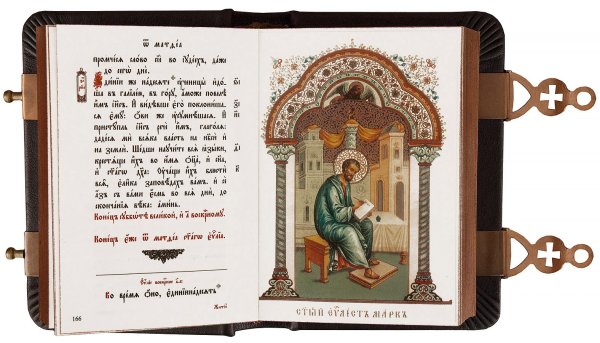 Ѿ матѳеа
промчесѧ слово сїе во іꙋдеехъ, даже
до сегѡ дне.
Єдинїи же надесѧте ᲂу҆ченицы идо-
ша въ галїлею, въ горꙋ, аможе повелѣ
имъ їисъ. И видѣвше его поклониша-
сѧ емꙋ: ови же ᲂусꙋмнѣшасѧ. И
пристꙋпль їисъ рече имъ, глаголѧ:
дадесѧ ми всѧка власть на нб҃си и
на земли. Шедше наꙋчите всѧ ꙗзыки,
крестѧще ихъ во имѧ оц҃а, и сн҃а,
и ст҃агѡ дх҃а: Оучаще ихъ блюсти
всѧ, елика заповѣдахъ вамъ. и се
азъ съ вами есмь во всѧ дни, до
скончанїѧ вѣка: аминь.
Конецъ сꙋбботѣ великой, и а҃ воскресномꙋ.
Конецъ еже ѿ матѳеа ст҃агѡ еѵ҃лїа.
Во времѧ оно, единїинадесѧть
166
СТ҃ЫЙ ЕѴ҃ЛІСТЪ МАРКЪ